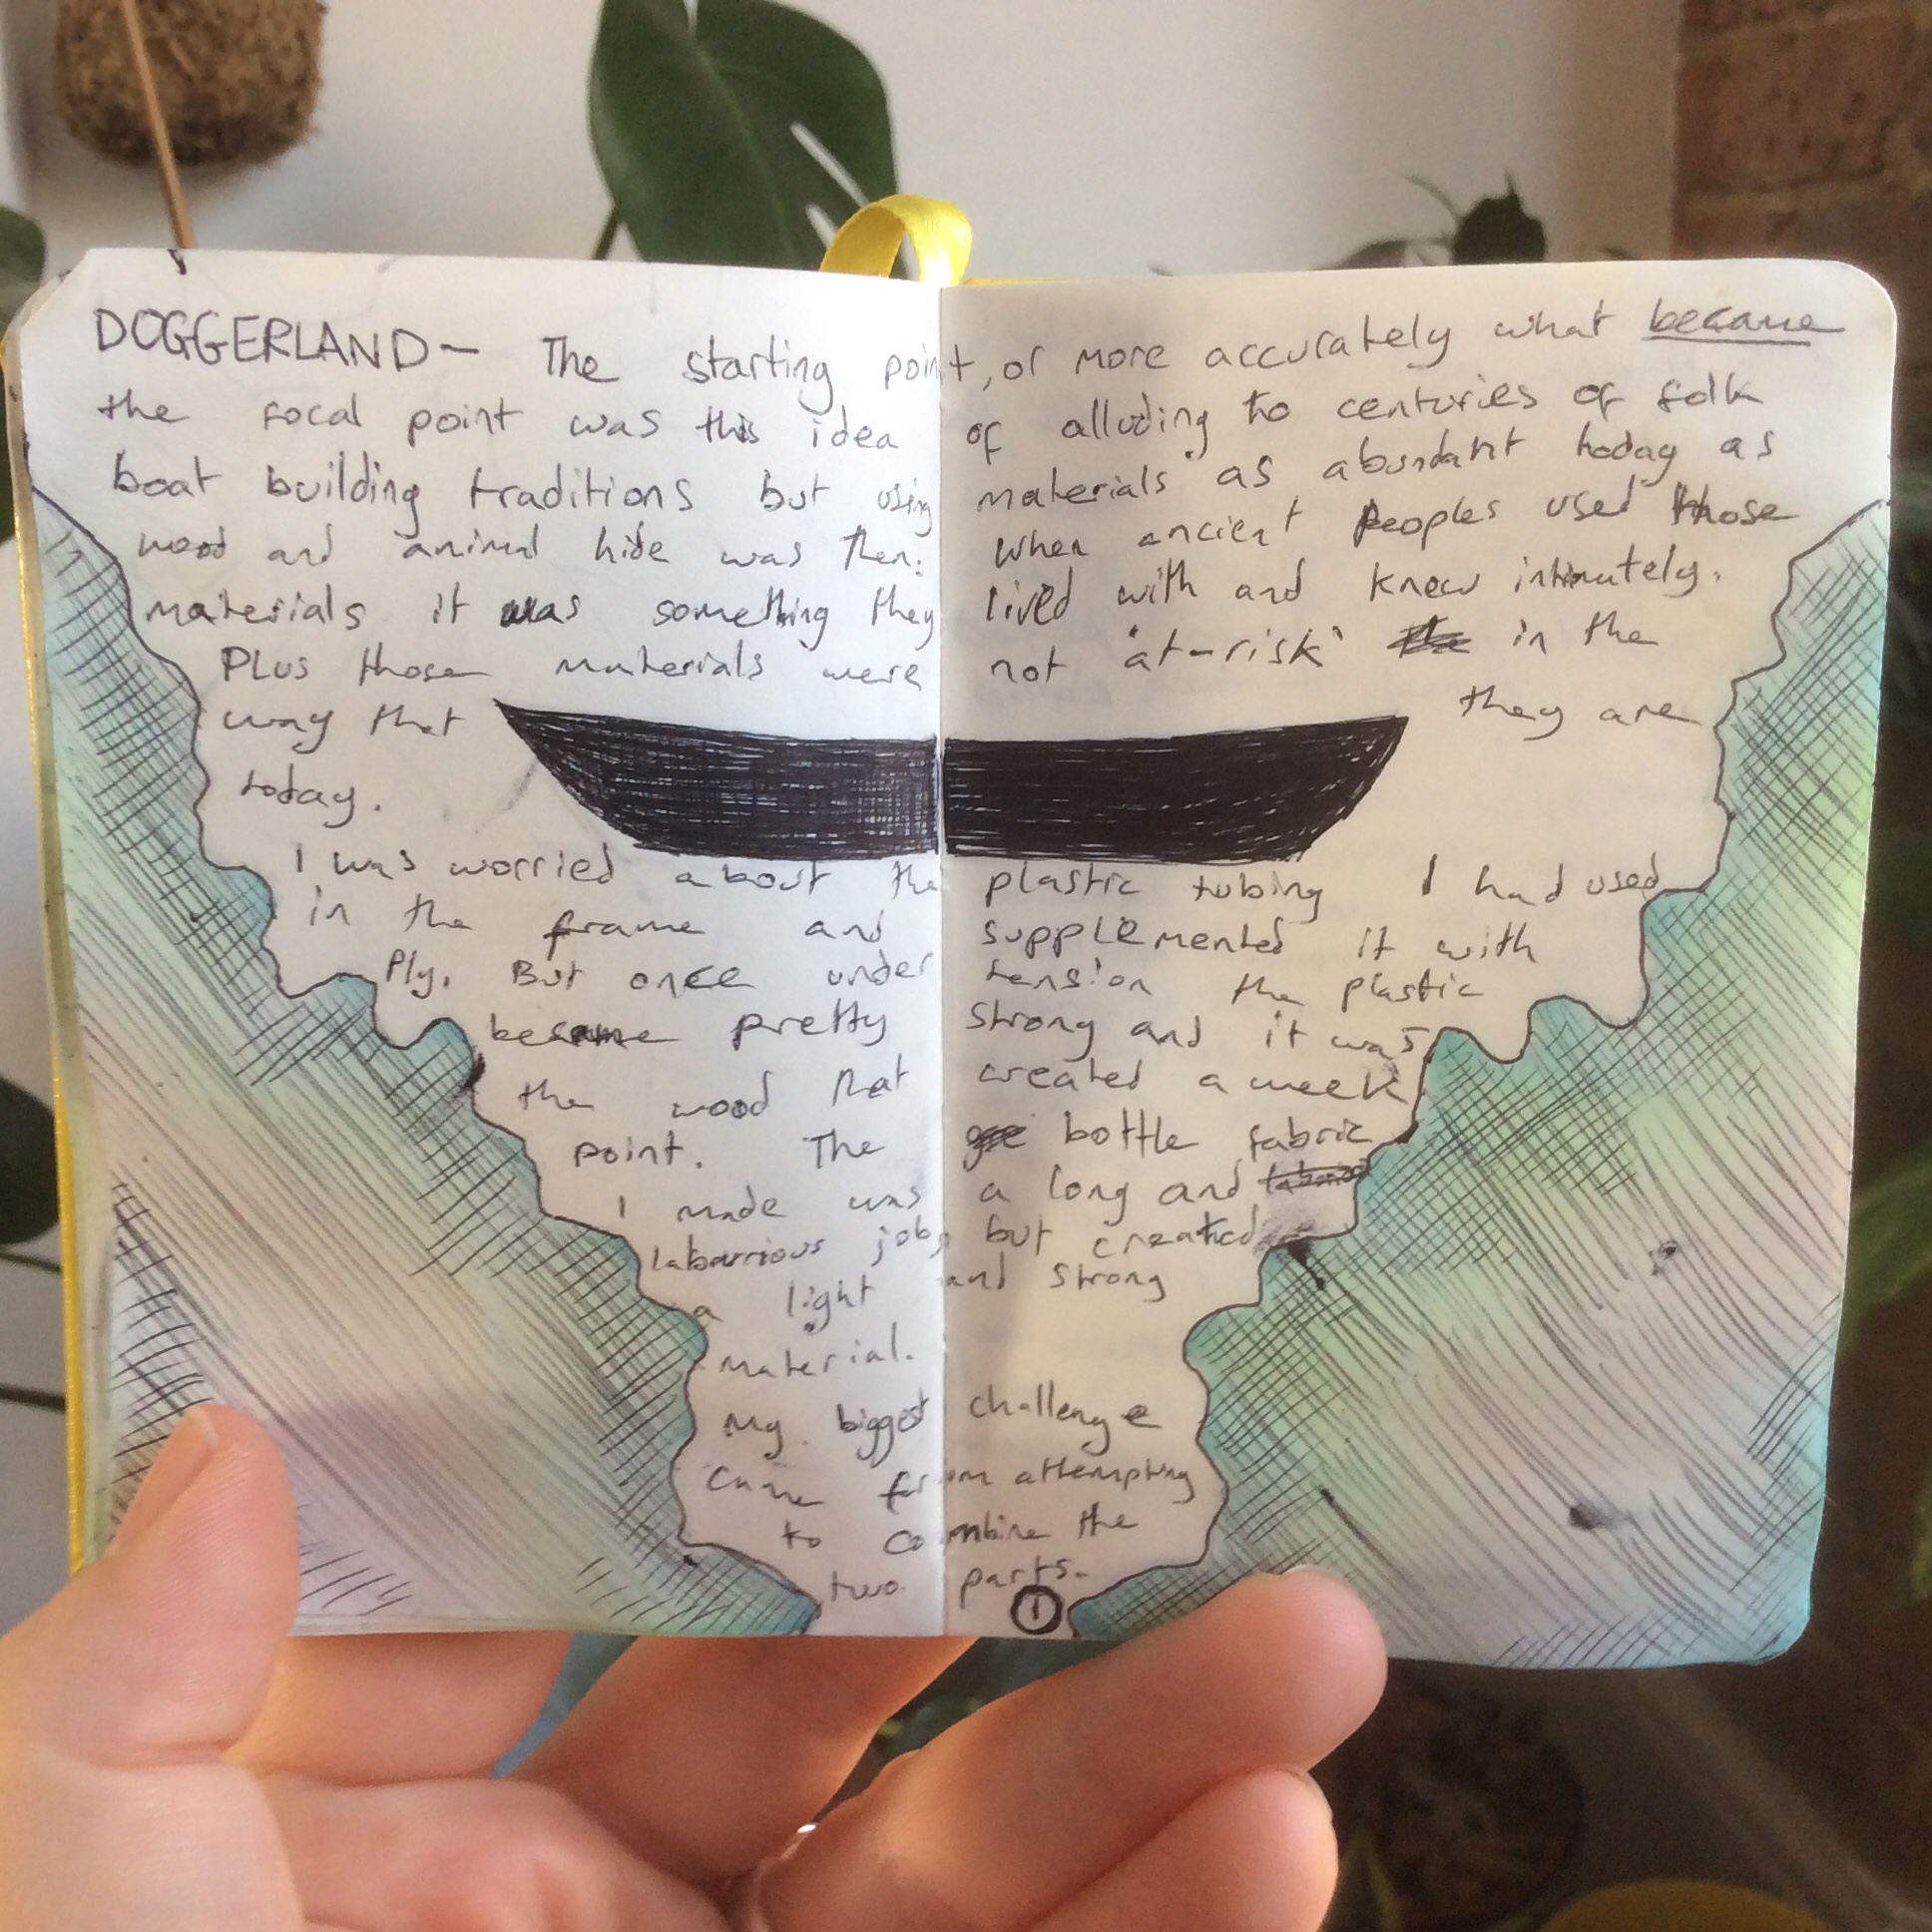 DOGGERLAND - The starting point, or more accurately what became
the focal point was this idea of alluding to centuries of folk
boat building traditions but using materials as abundant today as
wood and animal hide was then: when ancient peoples used those
materials it was something they lived with and knew intimately.
Plus those materials were not 'at-risk' in the
way that they are
today.
I was worried about the plastic tubing I had used
in the frame and supplemented it with
ply. But once under tension the plastic
became pretty strong and it was
the wood that created a week
point. The bottle fabric
I made was a long and
labourious job, but created
a light and strong
material.
My biggest challenge
came from attempting
to combine the
two parts.
1